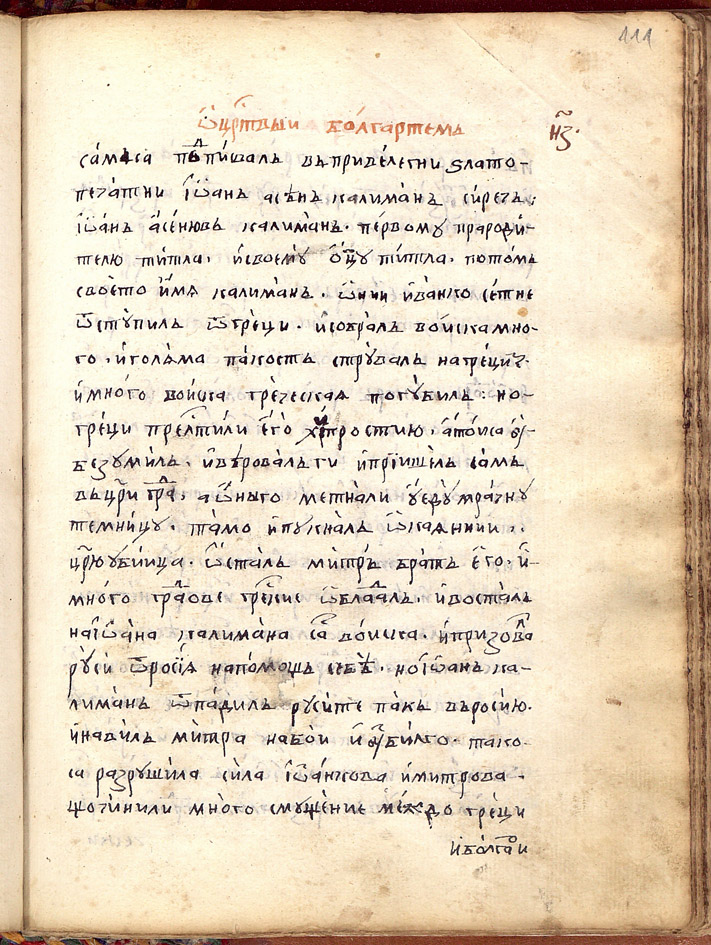 111
ѡ҆ црⷭ҇твы́и бо́лгартемъ
н҃з·
са́мъ са поⷣпи́шалъ въ приве́легни злато-
печа́тни і҆ѡа́нъ асѣ́нъ калима́нъ си́речъ:
і҆ѡа́нъ асе́нювъ калима́нъ· пе́рвому прароди́-
телю ти́тла, и҆ своемꙋ ѿцꙋ ти́тла, пото́мъ
своето и҆́мя калима́нъ· ѡ҆нии и҆ва́нко сетне
ѿстꙋпилъ ѿ греци· и҆ собра́лъ воиска мно-
го· и҆ голѧма па́кость стрꙋвалъ на гре́ци·
и҆ мно́го воиска гре́ческая погꙋби́лъ: но-
гре́ци прелⷭ҇ти́ли е҆го̀ хи́тростию· а҆то́иса ѡ҆-
безꙋми́лъ· и҆ вѣ́ровалъ ги и҆ прїише́лъ са́мъ
въ цр҃и гра́ⷣ, а ѡ҆ныго метна́ли ꙋ҆ едꙋ мра́чнꙋ
темни́цꙋ· та́мо и҆ пꙋкна́лъ ѡ҆кая́ннии,
цр҃ю ꙋби́ица· ѡ҆ста́лъ ми́тръ бра́тъ е҆го̀· и҆-
мно́го гра́ⷣове гре́ⷱкие ѡ҆бла́даⷣлъ· и҆ воста́лъ
на і҆ѡа́на калима́на са воиска· и҆ призоваⷧ
рꙋ́си ѿ росі́ѧ на по́мощъ себѣ̀· но і҆ѡа́нъ ка-
лима́нъ ѿпа́дилъ рꙋси́те па́къ въ роси́ю·
и҆ на́вилъ ми́тра на бо́и и҆ ꙋ҆би́лъ го· тако-
са разрꙋши́ла си́ла і҆ѡа́нкова и҆ ми́трова-
що чини́ли мно́го смꙋще́ние ме́ждо гре́ци
и҆ бо́лгаⷬи